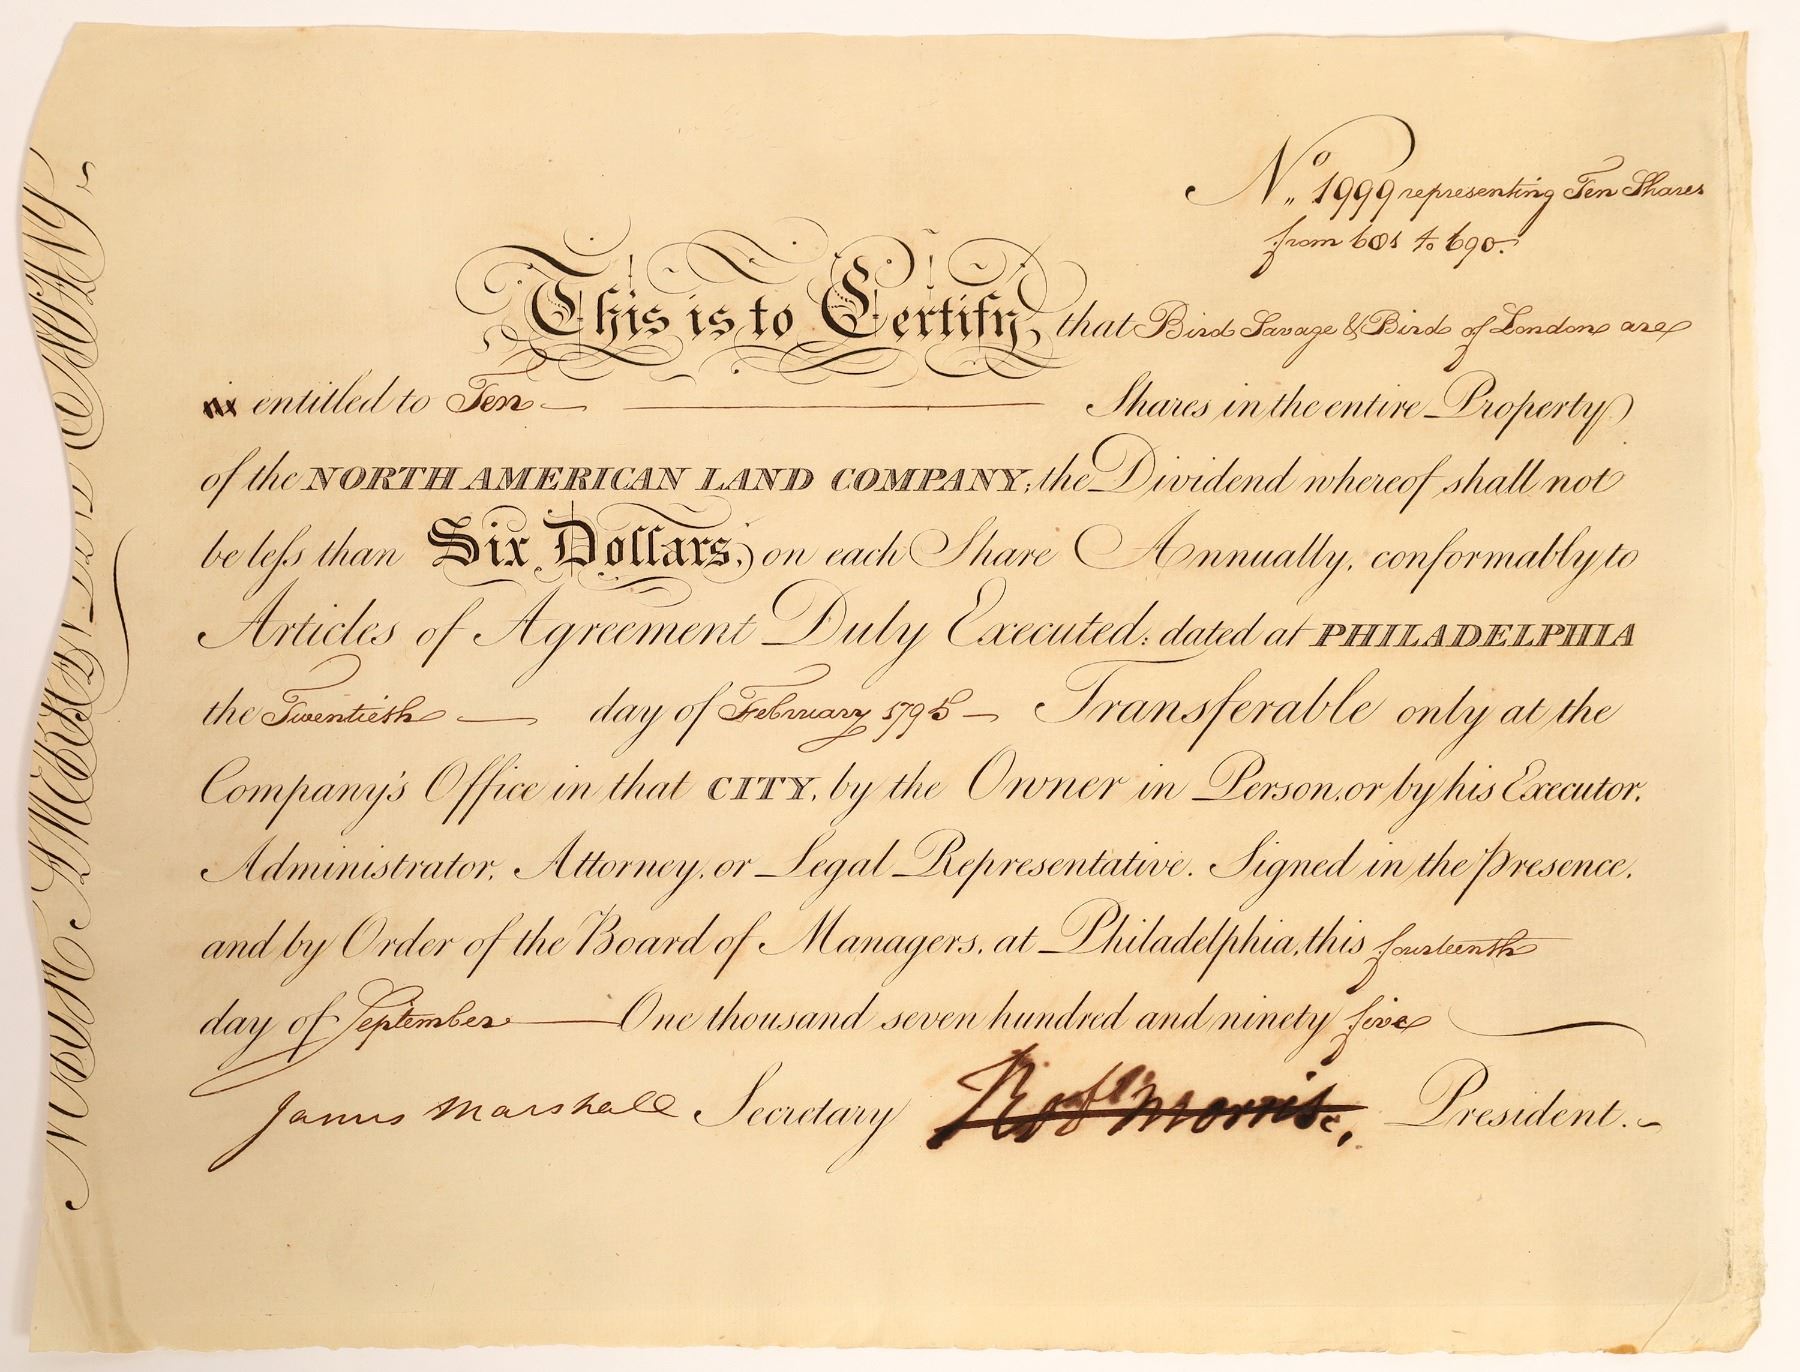 No. 1999 representing Ten Shares
from 681 to 690.
This is to Certify, that Bird Savage & Bird of London are
is entitled to Ten Shares in the entire Property
of the NORTH AMERICAN LAND COMPANY; the Dividend whereof shall not
be leſs than Six Dollars, on each Share Annually, conformably to
Articles of Agreement Duly Executed: dated at PHILADELPHIA
the Twentieth day of February 1795 Transferable only at the
Company's Office in that CITY, by the Owner in Person, or by his Executor,
Administrator, Attorney, or Legal Representative. Signed in the Presence,
and by Order of the Board of Managers, at Philadelphia, this fourteenth
day of September One thousand seven hundred and ninety five
James Marshall Secretary Robt Morris, President.
NORTH AMERICAN LAND COMPANY